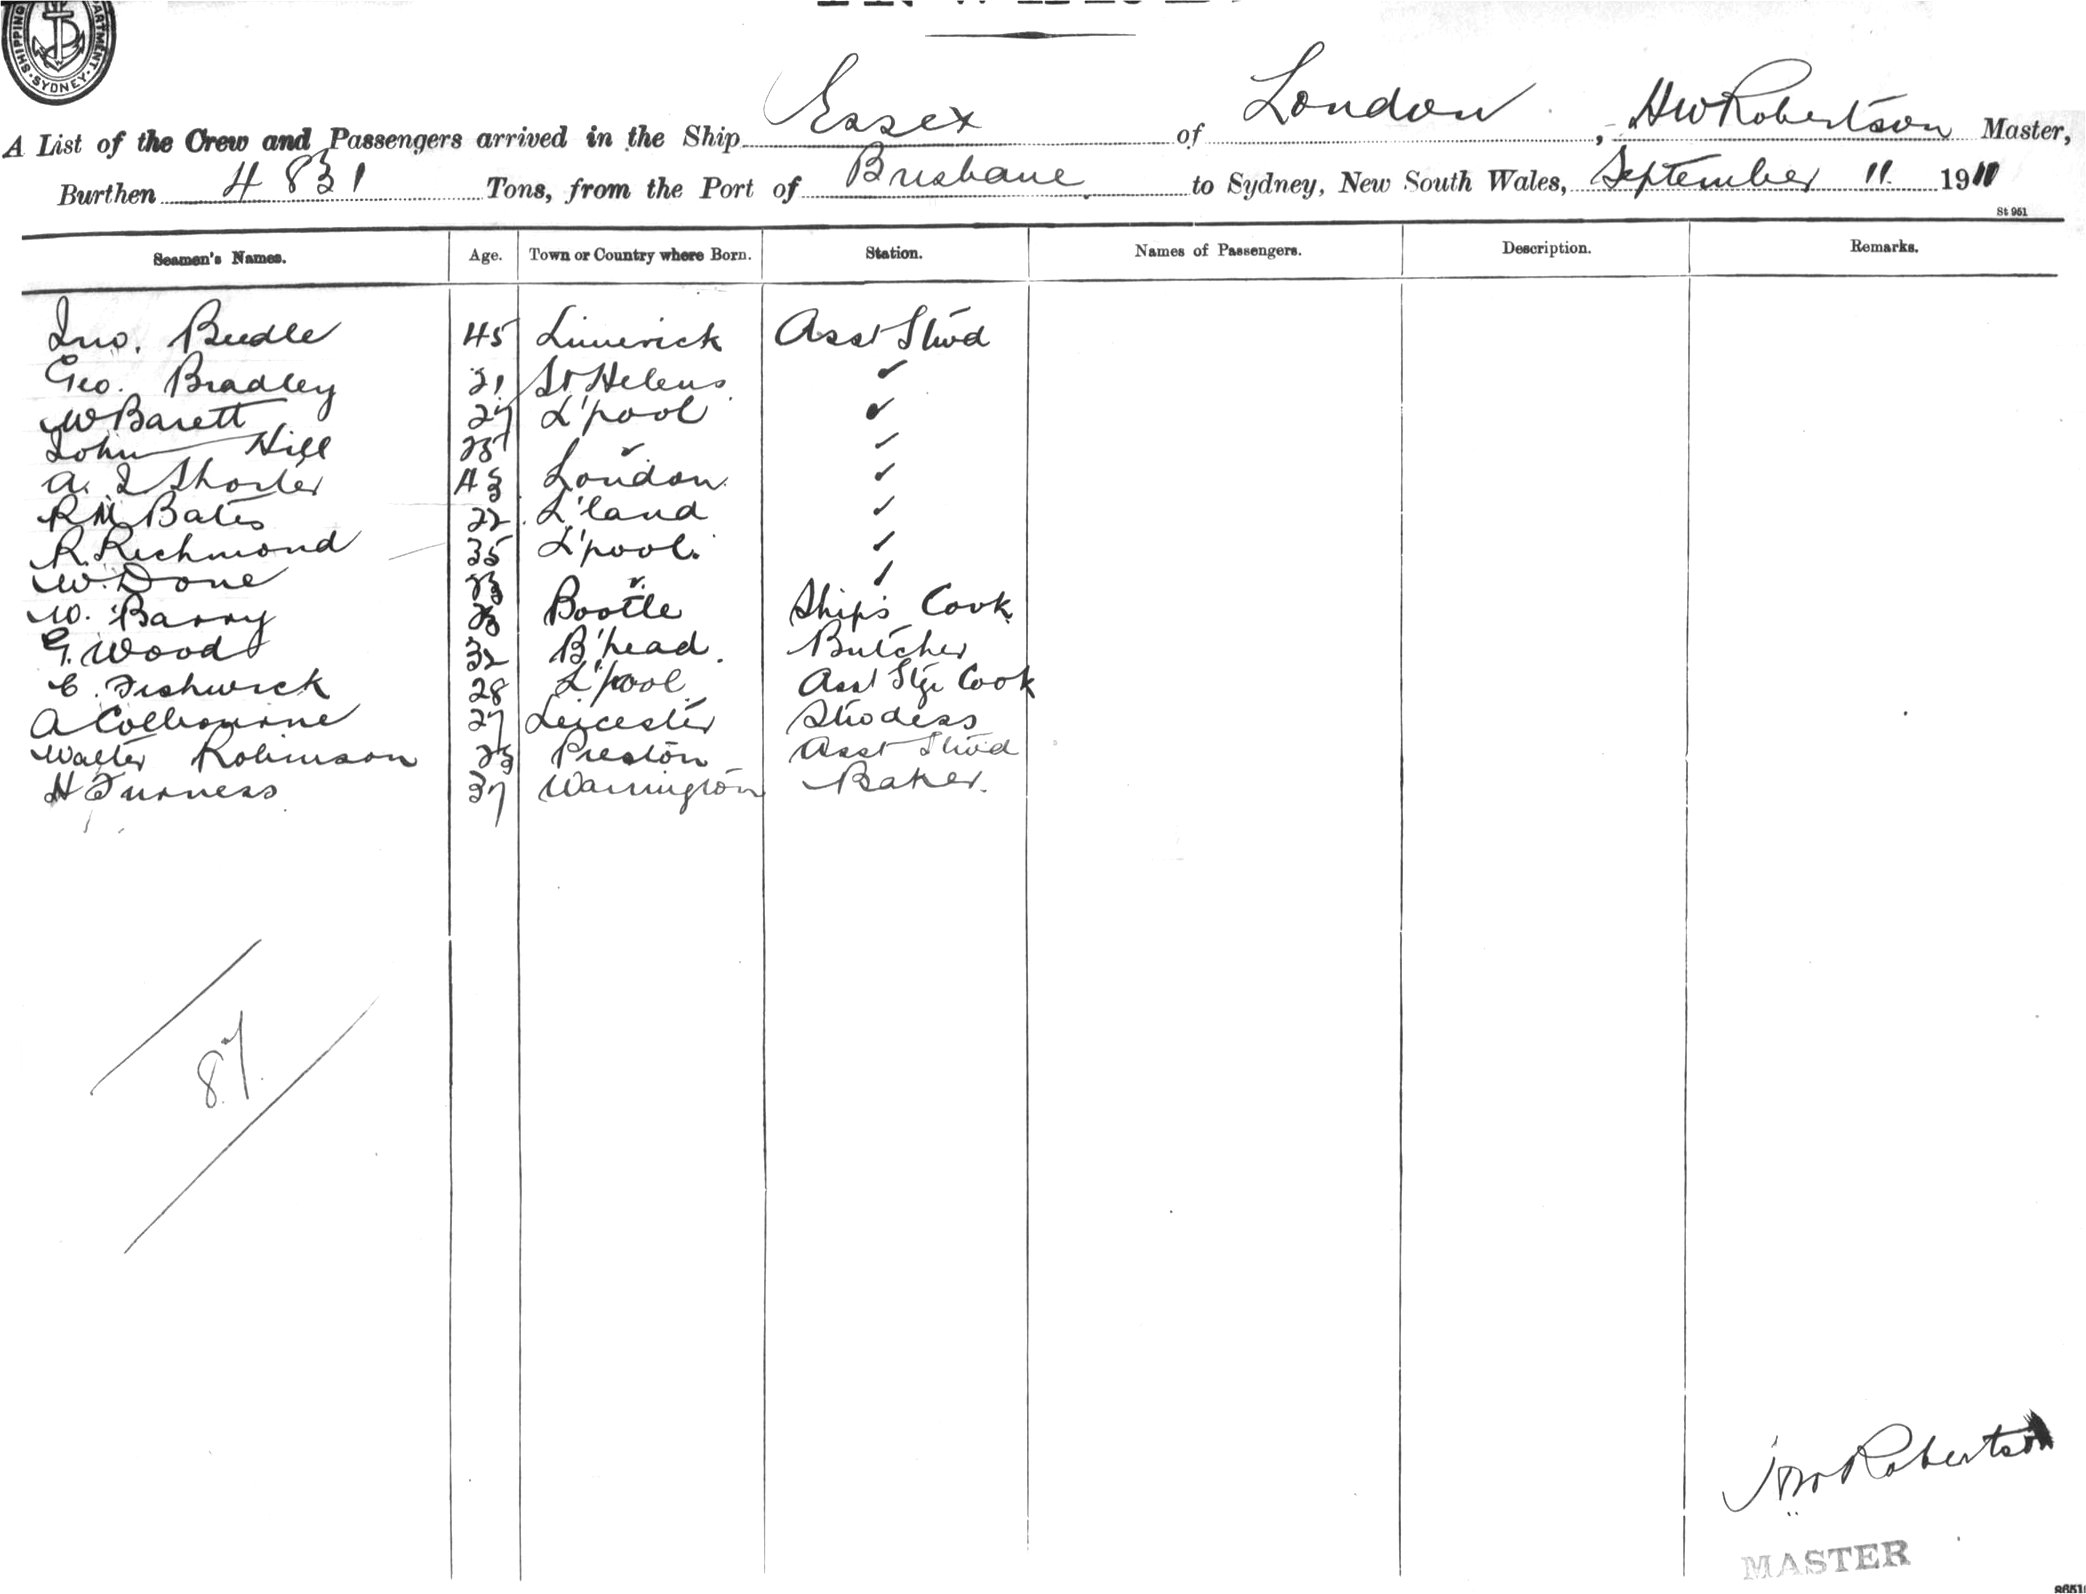 SHIPPING DEPARTMENT SYDNEY
INWARD
A List of the Crew and Passengers arrived in the Ship Essex of London, HW Robertson Master,
Burthen 4831 Tons, from the Port of Brisbane to Sydney, New South Wales, September 11 1911
St 951
Seamen's Names. Age. Town or Country where Born. Station. Names of Passengers. Description. Remarks.
Jno. Beedle 45 Limerick Asst Stwd
Geo. Bradley 21 St Helens ✓
W Barett 27 L'pool ✓
John Hill 25 ✓ ✓
A. J Shorter 43 London ✓
R M Bates 22 L'land ✓
R. Richmond 35 L'pool. ✓
W. Done 23 ✓ ✓
W. Barry 23 Bootle Ship's Cook
G. Wood 32 B'head. Butcher
C. Fishwick 28 L'pool Asst Stge Cook
A Colbourne 27 Leicester Stwdess
Walter Robinson 23 Preston Asst Stwd
H Furness 37 Warrington Baker.
87
HW Robertson
MASTER